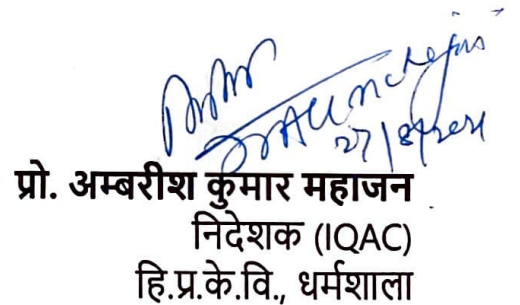 27/8/2024
प्रो. अम्बरीश कुमार महाजन
निदेशक (IQAC)
हि.प्र.के.वि., धर्मशाला